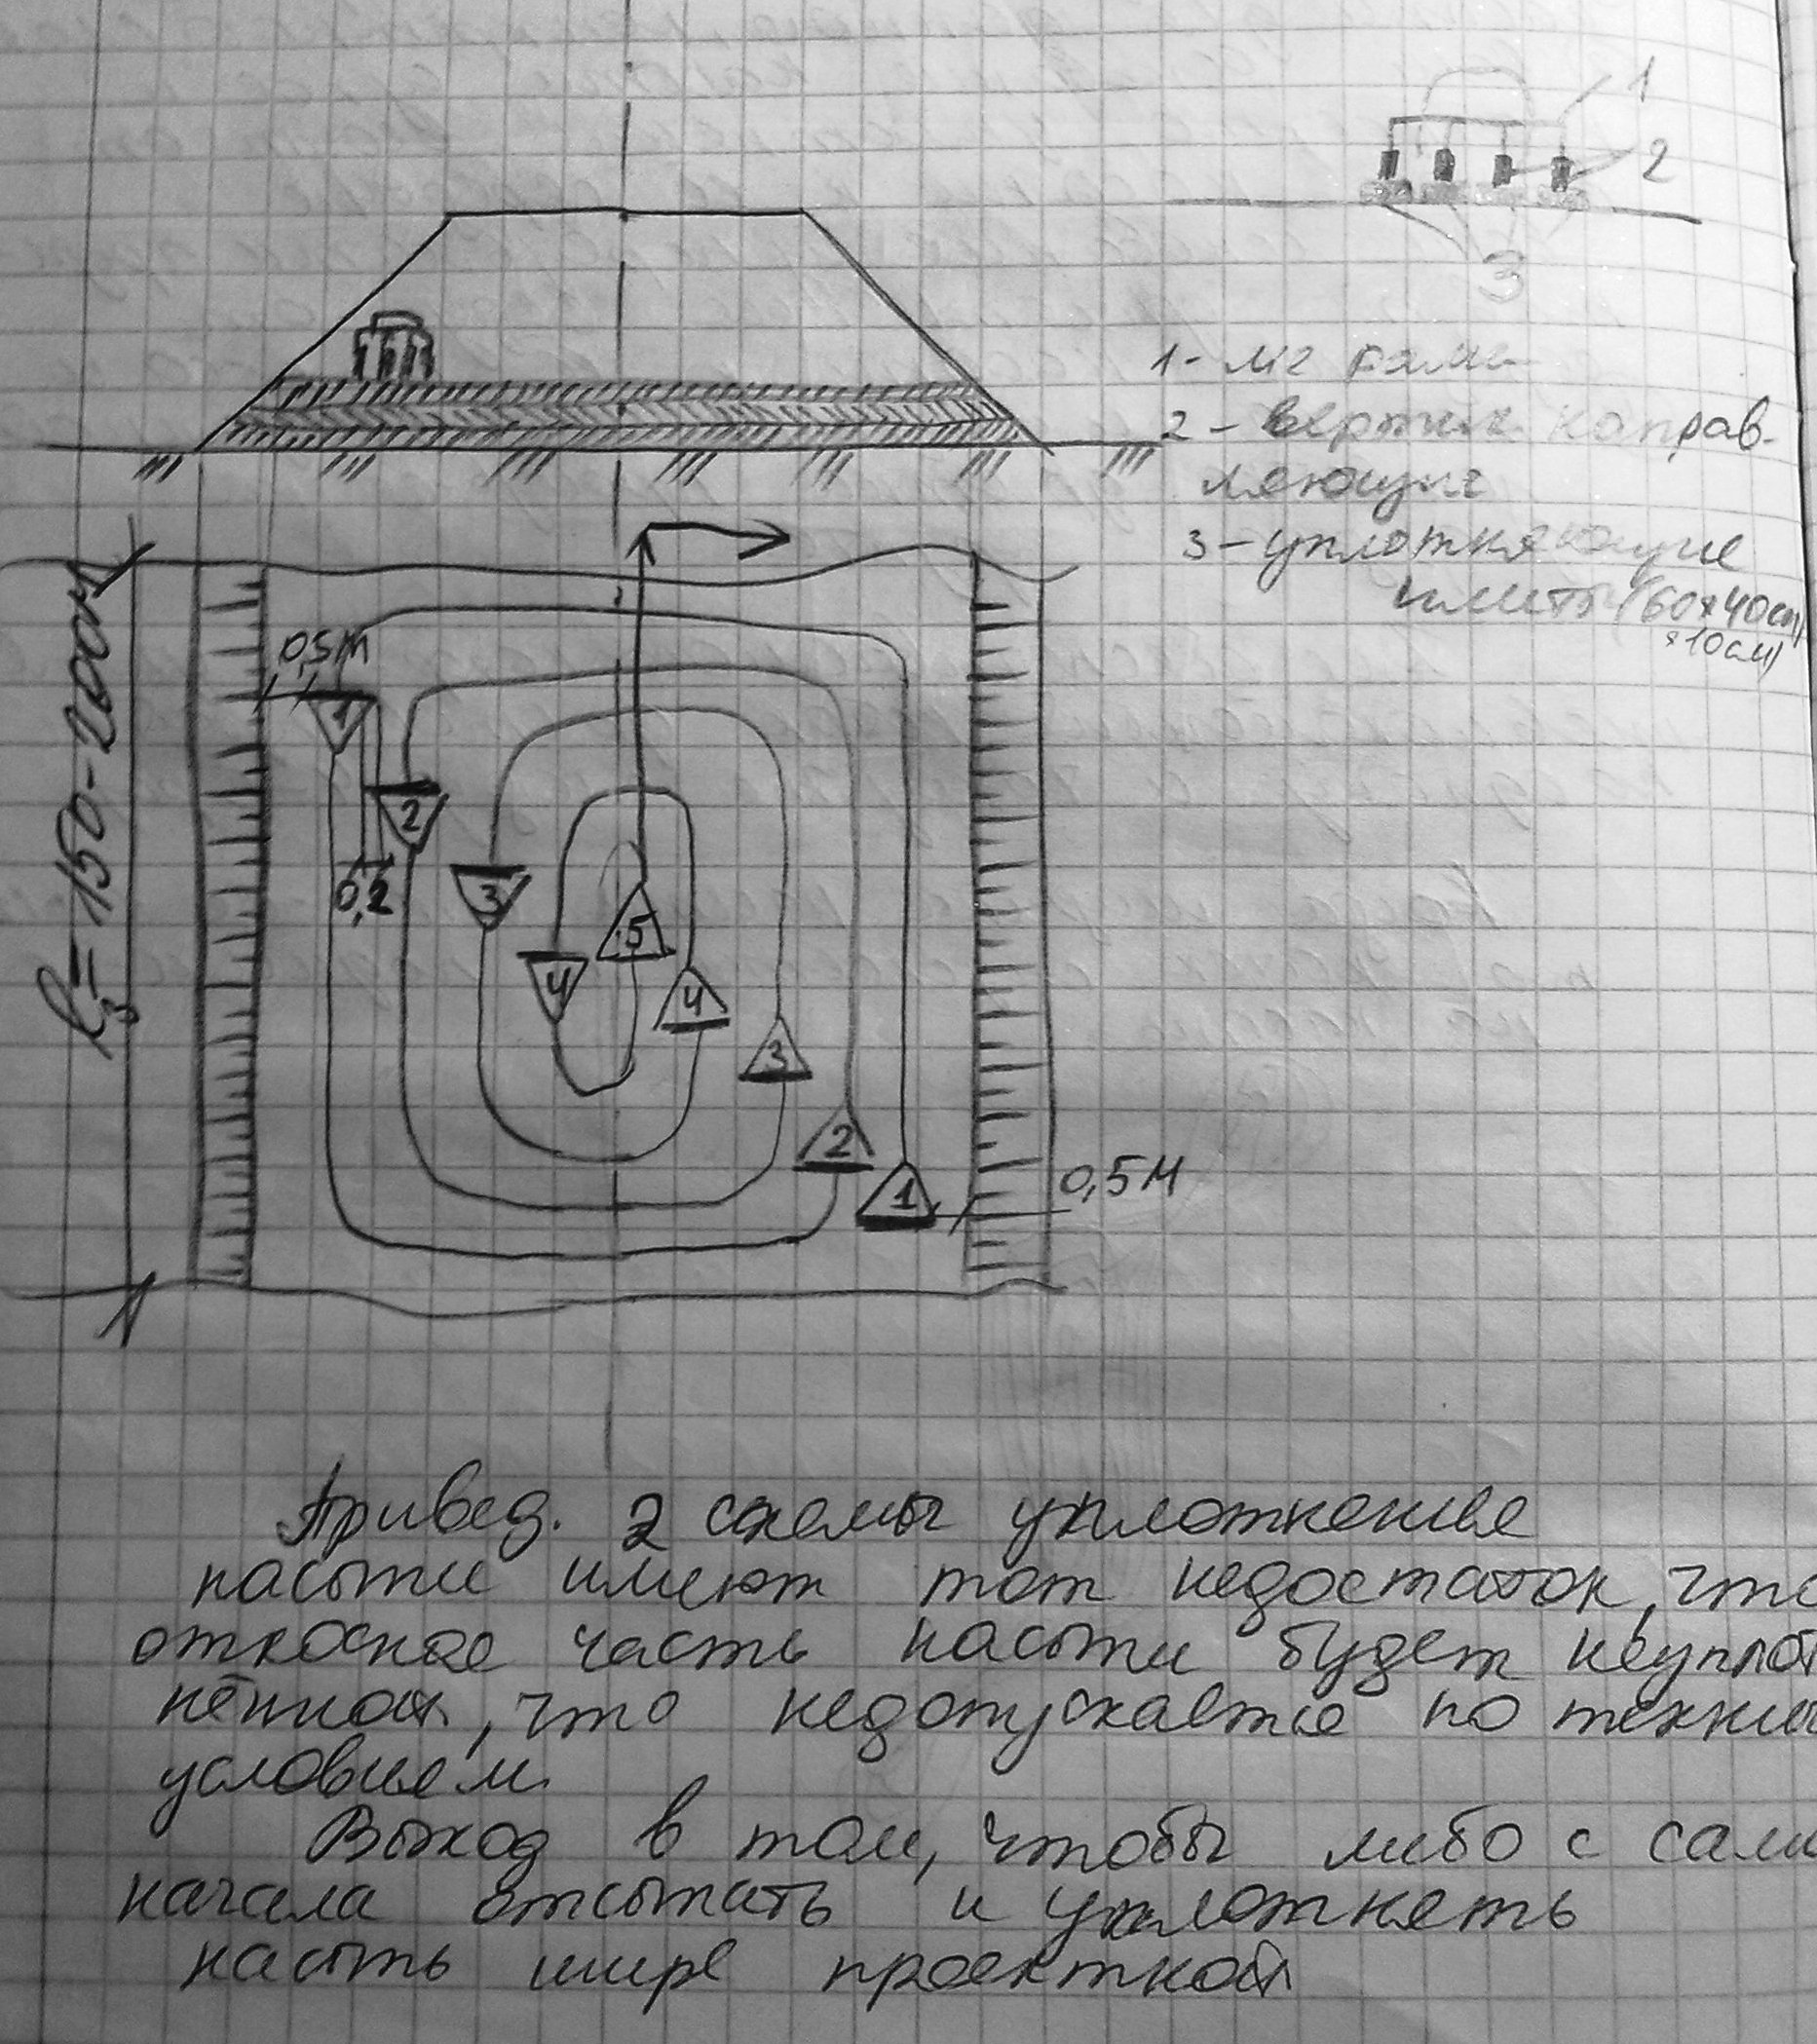 1
2
3
1- мг рама
2 - вертик направ-
ляющие
3 - уплотняющие
плиты (60х40см
х10см)
0,5м
ℓз = 150-200м
1
2
0,2
3
5
4
4
3
2
1
0,5м
Привед. 2 схемы уплотнение
насыпи имеют тот недостаток, что
откосная часть насыпи будет неуплот
нённой, что недопускается по техни
условием.
Выход в том, чтобы либо с сам
начала отсыпать и уплотнять
насыпь шире проектной